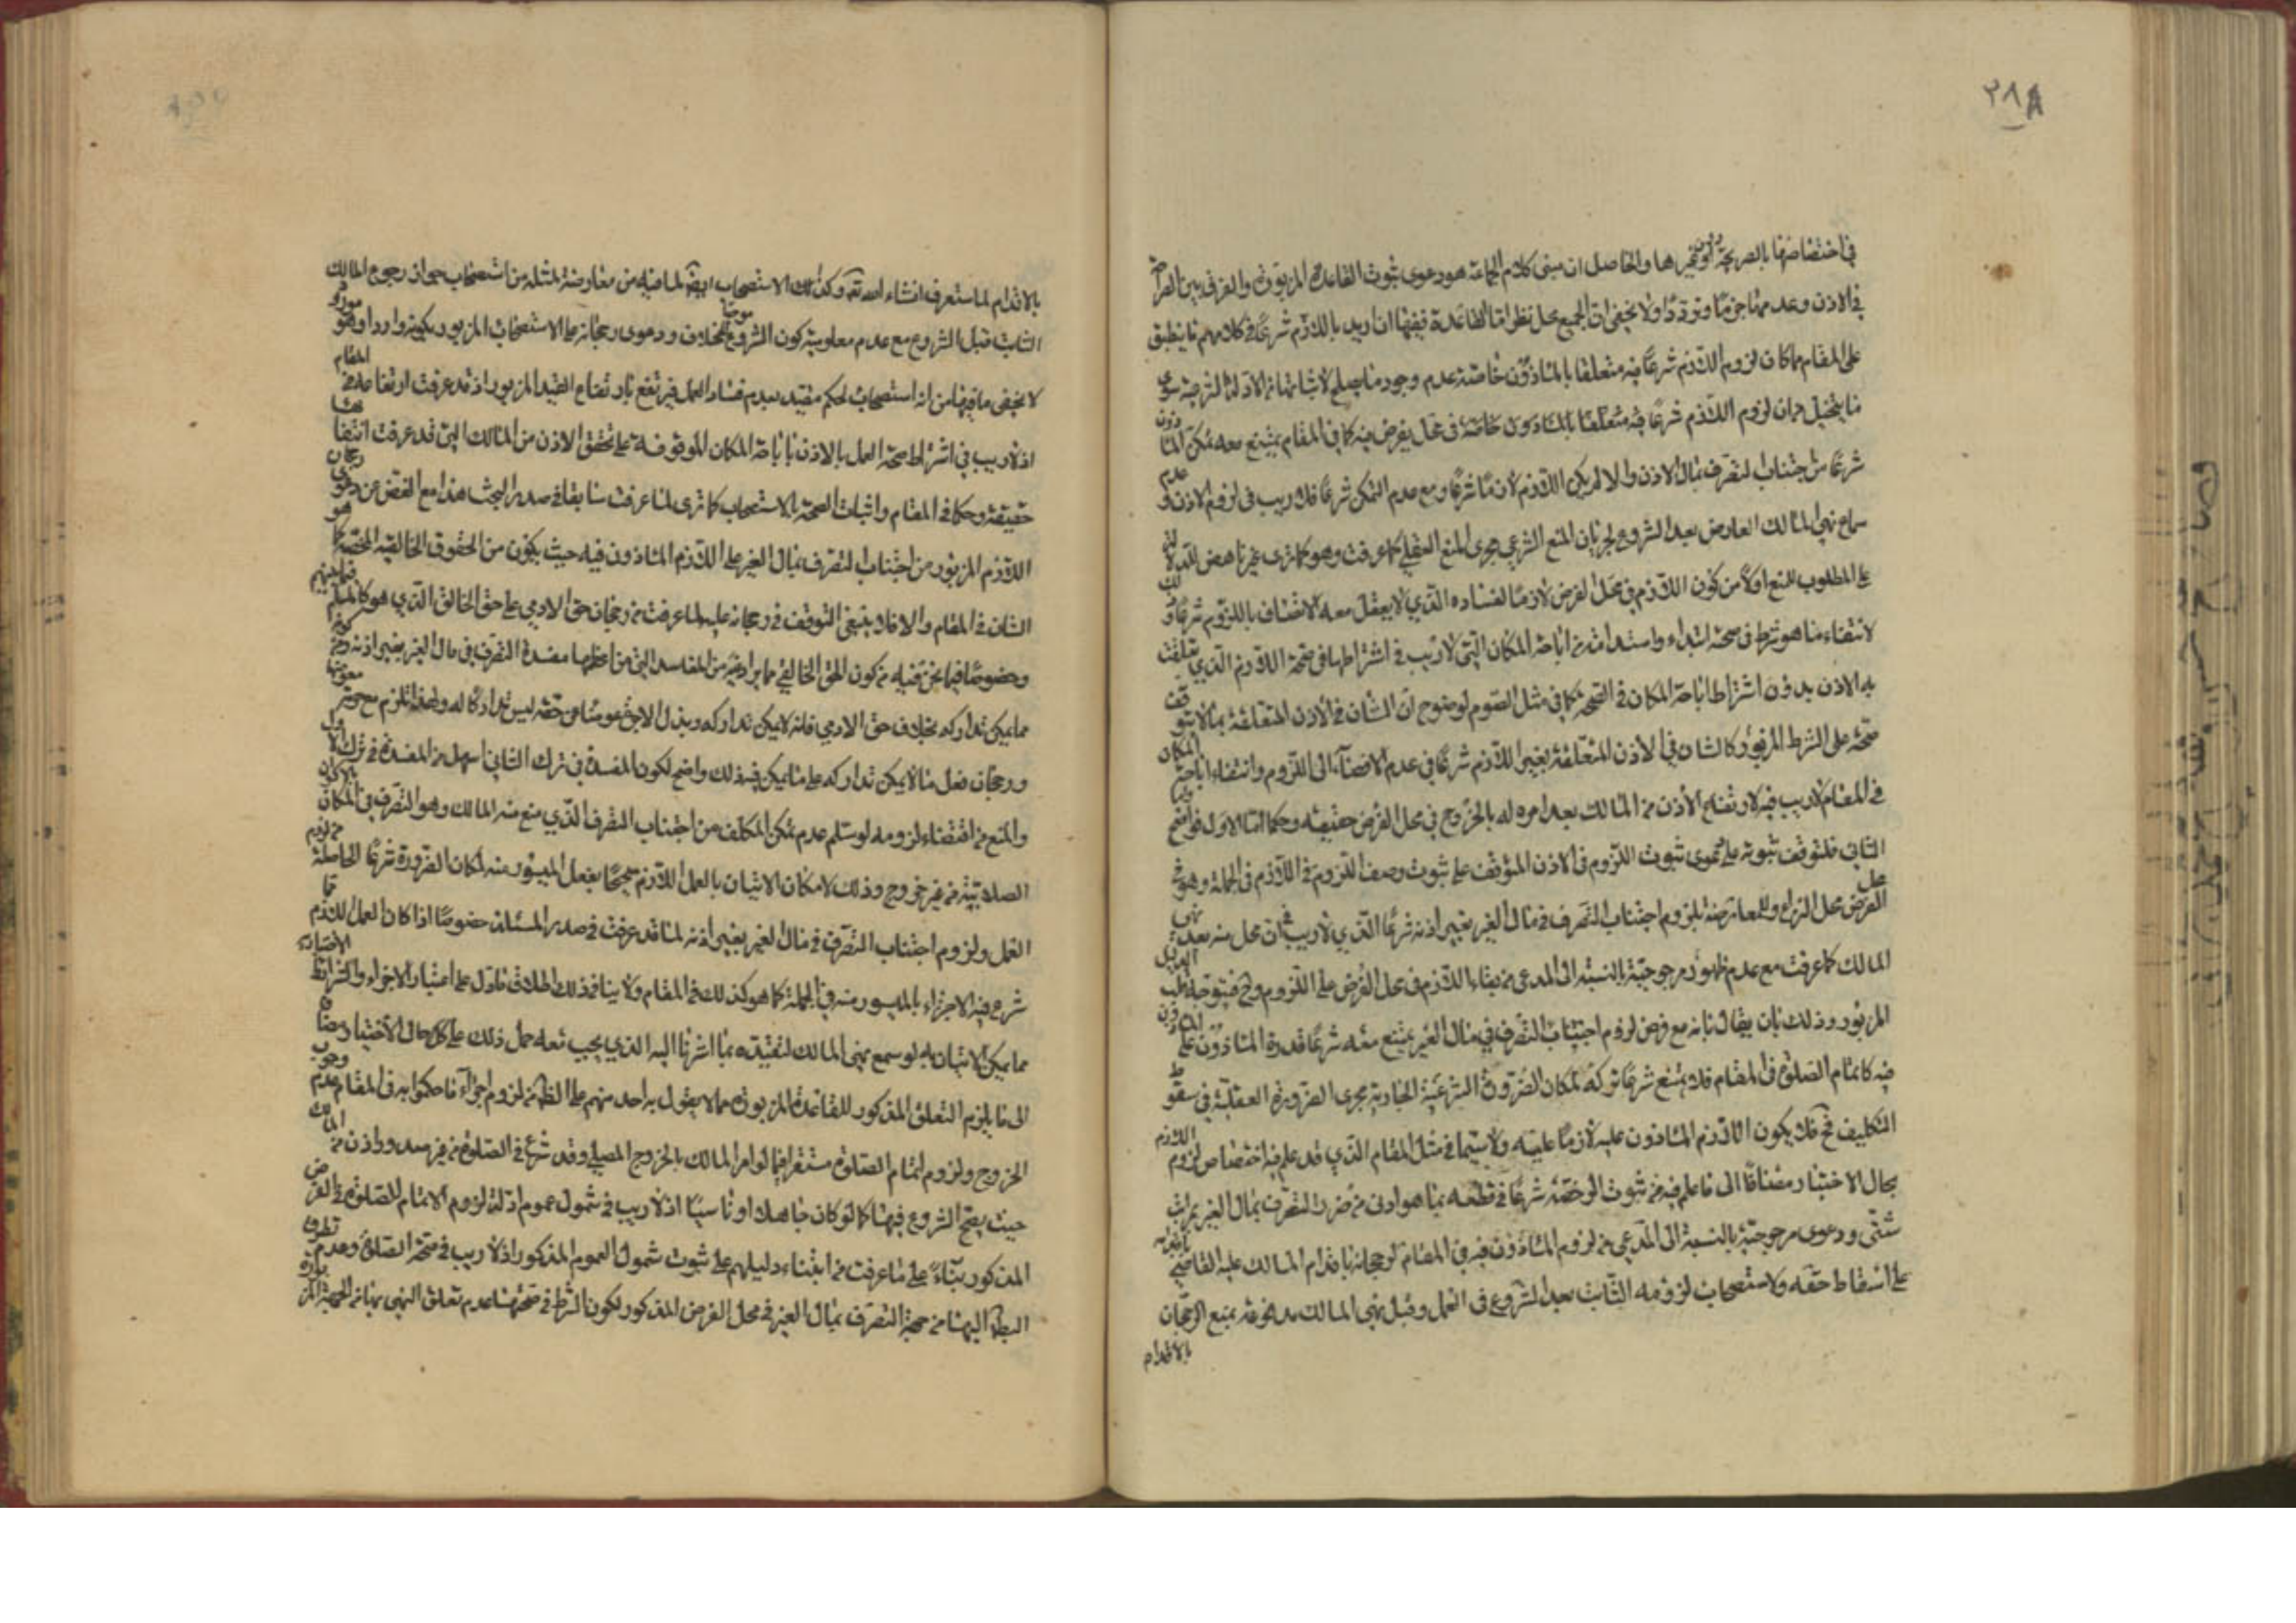 ٢٨٨
في اختصاصها بالصريحة او غيرها والحاصل ان مبنى كلام الجماعة هو دعوى ثبوت القاعدة المزبورة والفرق بين
في الاذن وعدمها جزما وترددا ولا يخفى ان الجميع محل نظر اما القاعدة ففيها ان اريد باللازم شرعا في كلامهم ما ينطبق
على المقام مما كان لزوم اللازم شرعا فيه متعلقا بالماذون خاصة عدم وجود ما يصلح لاثباتها من الادلة الشرعية سوى
ما يتخيل من ان لزوم اللازم شرعا فيه متعلقا بالماذون خاصة في محل يفرض فيه كما في المقام يمتنع معه تمكن
شرعا من اجتناب التصرف بمال الاذن والا لم يكن اللازم لازما شرعا ومع عدم التمكن شرعا فلا ريب في لزوم الاذن وعدم
سماع نهي المالك العارض بعد الشروع لجريان المنع الشرعي مجرى المنع العقلي كما عرفت وهو كما ترى غير ناهض
على المطلوب للمنع اولا من كون اللازم في محل الفرض لازما لفساده الذي لا يعقل معه الاتصاف باللزوم شرعا
لانتفاء ما هو شرط في صحة ابتداء واستدامة من اباحة المكان التي لا ريب في اشتراطها في صحة اللازم الذي تعلقت
به الاذن بدون اشتراط اباحة المكان في الصحة كما في مثل الصوم لوضوح ان الشان في الاذن المتعلقة بما لا يتوقف
صحته على الشرط المزبور كالشان في الاذن المتعلقة بغير اللازم شرعا في عدم الافضاء الى اللزوم وانتفاء اباحة المكان
في المقام لا ريب فيه لارتفاع الاذن من المالك بعد امره له بالخروج في محل الفرض حقيقة وحكما اما الاول فواضح واما
الثاني فلتوقف ثبوته على دعوى ثبوت اللزوم في الاذن الموقف على ثبوت وصف اللزوم في اللازم في الجملة وهو في
الفرض محل النزاع وللمعارضة بلزوم اجتناب التصرف في مال الغير بغير اذنه شرعا الذي لا ريب في ان محل منه بعد نهي
المالك كما عرفت مع عدم ظهور مرجوحيته بالنسبة الى المدعى من بقاء اللازم في محل الفرض على اللزوم وح فيتوجه
المزبور وذلك بان يقال بانه مع فرض لزوم اجتناب التصرف في مال الغير يمتنع معه شرعا قدرة الماذون على
فيه كاتمام الصلوة في المقام فلا يمتنع شرعا تركه لمكان الضرورة الشرعية الجارية مجرى الضرورة العقلية في سقوط
التكليف فح فلا يكون اللازم الماذون عليه لازما عليه ولا سيما في مثل المقام الذي قد علم فيه اختصاص لزوم اللازم
بحال الاختيار مضافا الى ما علم فيه من ثبوت الرخصة شرعا في قطعه بما هو ادنى من ضرر التصرف بمال الغير بمراتب
شتى ودعوى مرجوحيته بالنسبة الى المدعي من لزوم الماذون فيه في المقام لرجحانه باقدام المالك عليه القاضي
على اسقاط حقه ولاستصحاب لزومه الثابت بعد الشروع في العمل وقبل نهي المالك مدفوعة بمنع الرجحان
بالاقدام
بالاقدام لما ستعرف انشاء الله تعه وكذلك الاستصحاب ايضا لما فيه من معارضة لمثله من استصحاب جواز رجوع المالك
الثابت قبل الشروع مع عدم معلومية كون الشروع موجبا للخلاف ودعوى رجحانه على الاستصحاب المزبور بكونه واردا وهو
لا يخفى ما فيها من انه استصحاب لحكم مقيد بعدم فساد العمل فيرتفع بارتفاع القيد المزبور اذ قد عرفت ارتفاعه في المقام
اذ لا ريب في اشتراط صحة العمل بالاذن باباحة المكان الموقوفة على تحقق الاذن من المالك التي قد عرفت انتفائها
حقيقة وحكما في المقام واثبات الصحة بالاستصحاب كما ترى لما عرفت سابقا في صدر البحث هذا مع الغض عن دعوى رجحان
اللازم المزبور من اجتناب التصرف بمال الغير على اللازم الماذون فيه حيث يكون من الحقوق الخالقية المختصة كما هو
الشان في المقام والا فلا ينبغي التوقف في رجحانه عليه لما عرفت من رجحان حق الادمي على حق الخالق الذي هو كالمسلم فيما بينهم
وخصوصا فيما نحن فيه من كون الحق الخالقي مما يرادفه من المفاسد التي من اعظمها مفسدة التصرف في مال الغير بغير اذنه
مما يمكن تداركه بخلاف حق الادمي فانه لا يمكن تداركه وبذل الاجرة عوضا عن حقه ليس تداركا له
ورجحان فعل ما لا يمكن تداركه على ما يمكن فيه ذلك واضح لكون المفسدة في ترك الثاني اسهل من المفسدة في ترك الاول
والمنع من اقتضاء لزومه لو سلم عدم تمكن المكلف من اجتناب التصرف الذي منع منه المالك وهو التصرف في المكان بالاكوان
الصلاتية من غير خروج وذلك لامكان الاتيان بالعمل اللازم صحيحا بفعل الميسور منه لمكان الضرورة شرعا الحاصلة من لزوم
العمل ولزوم اجتناب التصرف في مال الغير بغير اذنه لما قد عرفت في صدر المسئلة خصوصا اذا كان العمل اللازم مما
شرع فيه الاجتزاء بالميسور منه في الجملة كما هو كذلك في المقام ولا ينافي ذلك اطلاق ما دل على اعتبار الاجزاء والشرائط
مما يمكن الاتيان به لو سمع نهي المالك لتقييده بما اشرنا اليه الذي يجب معه حمل ذلك على حال الاختيار
الى ما يلزم التعلق المذكور للقاعدة المزبورة مما لا يقول به احد منهم على الظ من لزوم اجراء ما حكموا به في المقام من عدم وجوب
الخروج ولزوم اتمام الصلوة مستقرا فيما لو امر المالك بالخروج المصلي وقد شرع في الصلوة من غير اذن من المالك
حيث يصح الشروع فيها كما لو كان جاهلا او ناسيا اذ لا ريب في شمول عموم ادلة لزوم الاتمام للصلوة في الفرض
المذكور بناء على ما عرفت من ابتناء دليلهم على ثبوت شمول العموم المذكور اذ لا ريب في صحة الصلوة وعدم تطرق
البطلان اليها من جهة التصرف بمال الغير في محل الفرض المذكور لكون الشرط في صحتها عدم تعلق النهي بها من الجهة